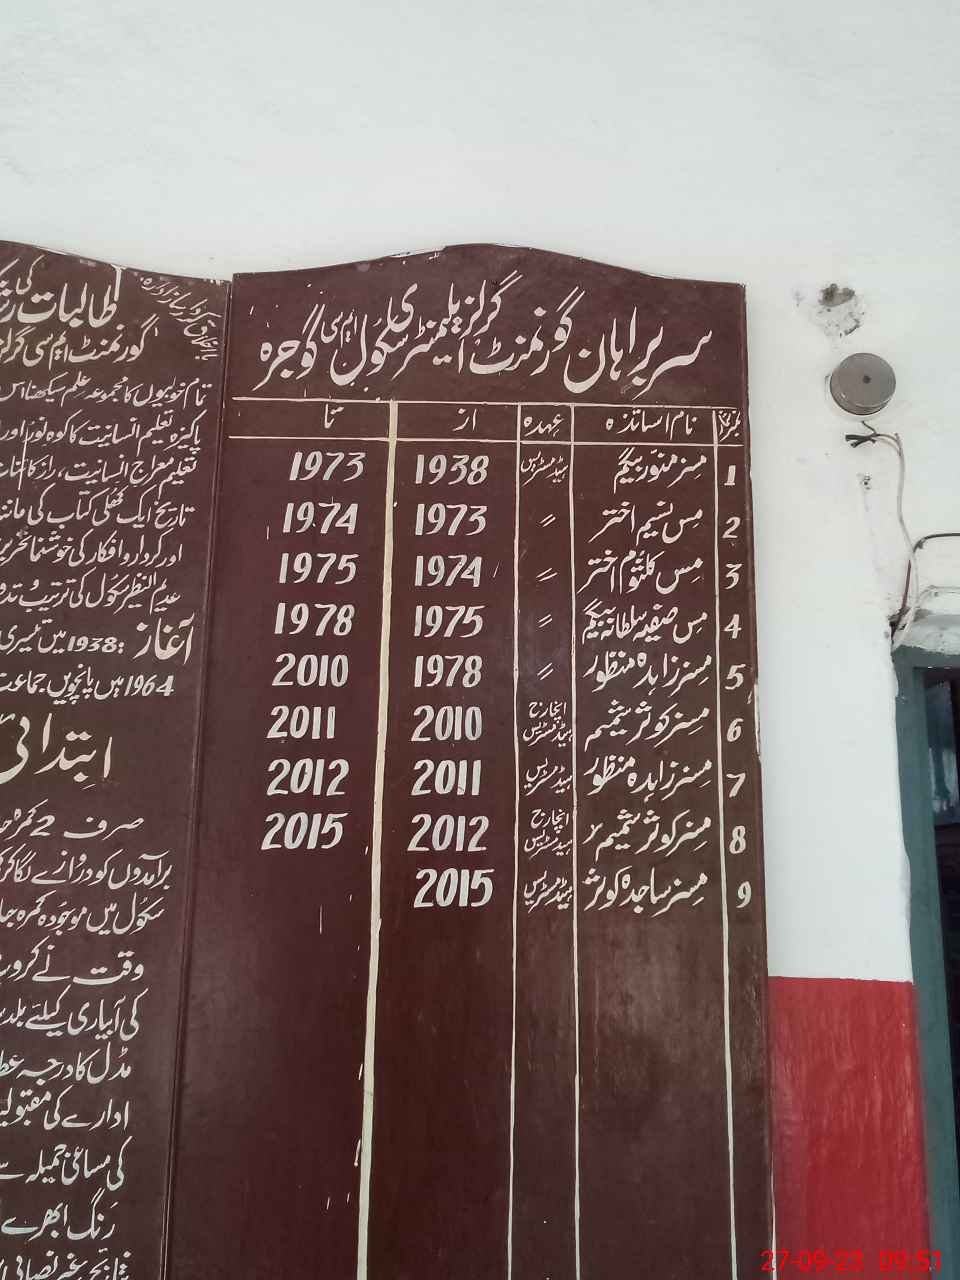 سربراہان گورنمنٹ گرلز ایلیمنٹری سکول ایم سی گوجرہ
نمبر شمار نام اساتذہ عہدہ از تا
1 مسز منور بیگم ہیڈمسٹریس 1938 1973
2 مس نسیم اختر 〃 1973 1974
3 مس کلثوم اختر 〃 1974 1975
4 مس صفیہ سلطانہ بیگم 〃 1975 1978
5 مسز زاہدہ منظور 〃 1978 2010
6 مسز کوثر شمیم انچارج ہیڈمسٹریس 2010 2011
7 مسز زاہدہ منظور ہیڈمسٹریس 2011 2012
8 مسز کوثر شمیم انچارج ہیڈمسٹریس 2012 2015
9 مسز ساجدہ کوثر ہیڈمسٹریس 2015
طالبات کی
گورنمنٹ ایم سی گرلز
تام خوبیوں کا مجموعہ علم سیکھنا اس
پاکیزہ تعلیم انسانیت کا کوہ نور اور
تعلیم معراج انسانیت، راز
تاریخ ایک کھلی کتاب کی مانند
اور کردار و افکار کی خوشنما تحریر
عدیم النظیر سکول کی ترتیب و تدو
آغاز :1938 میں تیسری
1964 میں پانچویں جماعت
ابتدائی
صرف 2 کمرہ
برآمدوں کو دروازے لگا کر
سکول میں موجودہ کمرہ جا
وقت نے کروٹ
کی آبیاری کیلئے بلد
مڈل کا درجہ عط
ادارے کی مقبولیت
کی مساعی جمیلہ سے
رنگ ابھرے
نتائج غیر نصابی
27-09-23 09:51